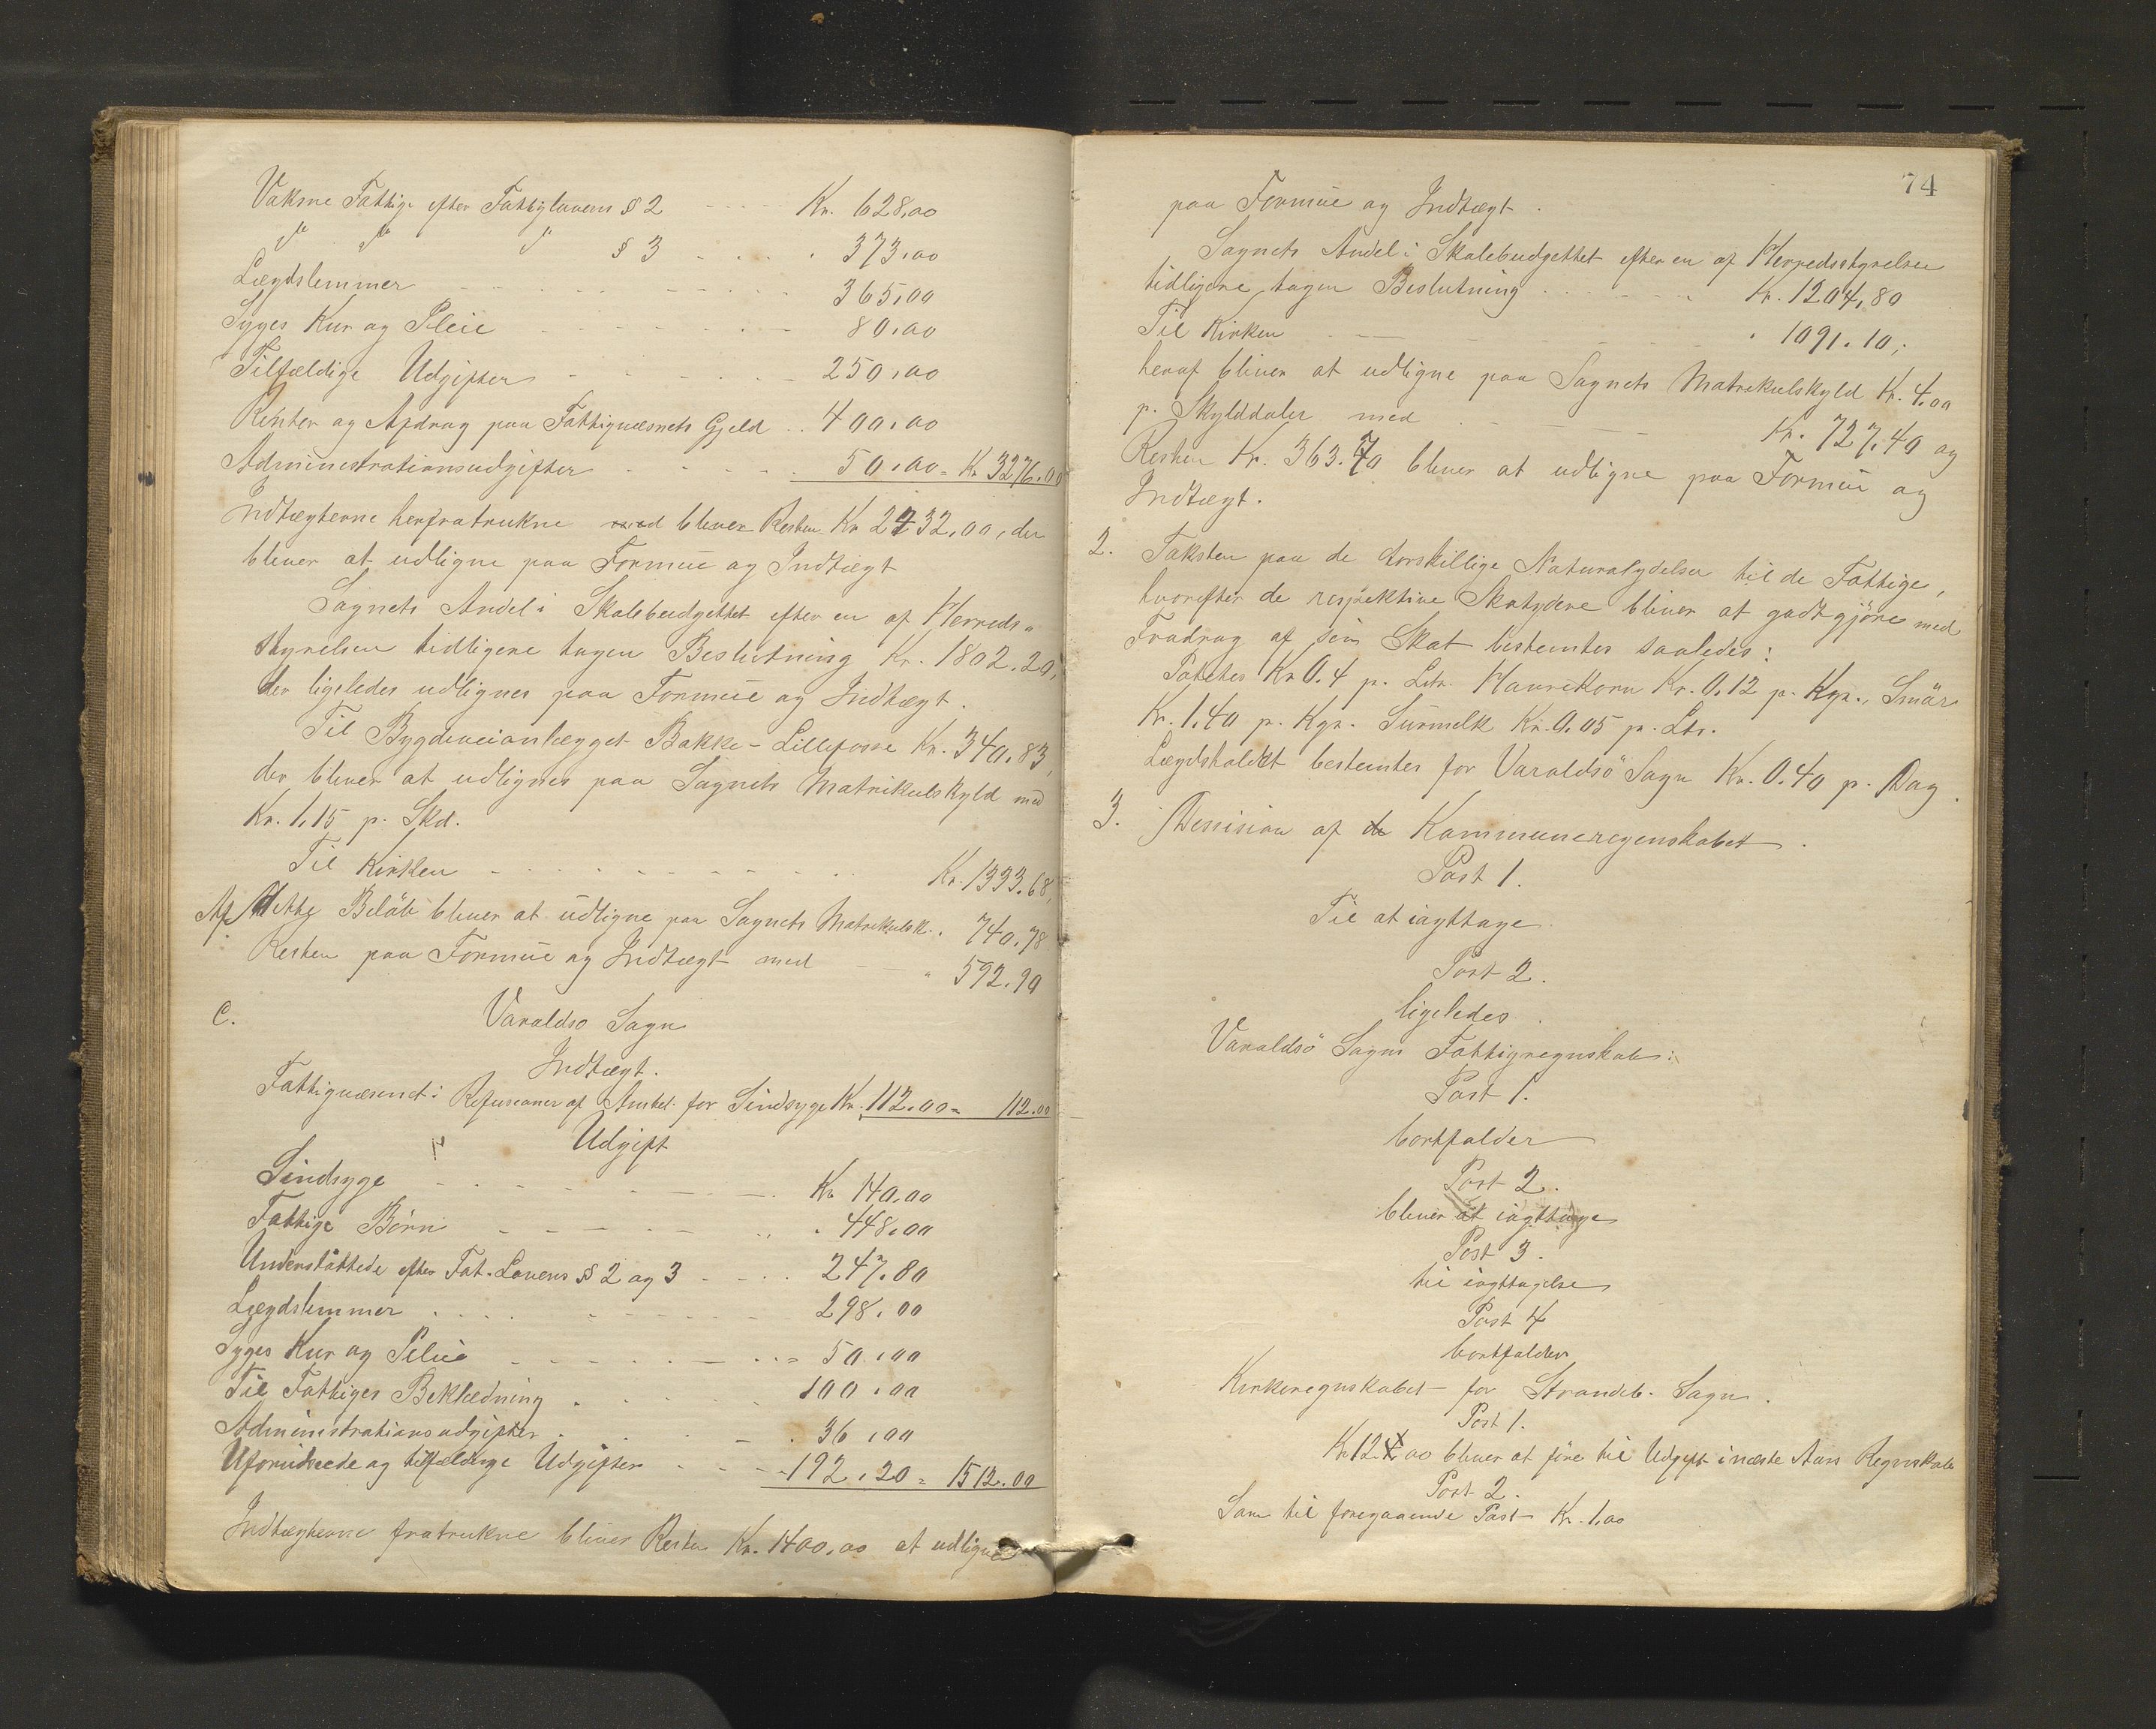 Vaksne Fattige efter Fattiglovens § 2 - - - - Kr. 628,00
" " " § 3 - . . . 373,00
Lægdslemmer - - - - - - - - 365,00
Syges Kur og Pleie - - - - - - - 80,00
Tilfældige Udgifter - - - - - - 250,00
Renter og Afdrag paa Fattigvæsnets Gjeld . . 400,00
Administrationsudgifter - - - - - 50,00 = Kr 3276.00
Indtægterne herfratrukne bliver Resten Kr 2432,00, der
bliver at udligne paa Formue og Indtægt
Sognets Andel i Skolebudgettet efter en af Herreds-
styrelsen tidligere tagen Beslutning Kr. 1802.20,
der ligeledes udlignes paa Formue og Indtægt.
Til Bygdeveianlægget Bakke - Lillefosse Kr. 340,83,
der bliver at udlignes paa Sognets Matrikulskyld med
Kr. 1,15 p. Skd.
Til Kirken - - - - - - - - - Kr. 1333,68,
Af dette Beløb bliver at udligne paa Sognets Matrikulsk. . 740,78
Resten paa Formue og Indtægt med - - " 592.90
C. Varaldsö Sogn
Indtægt.
Fattigvæsenet: Refusioner af Amtet for Sindsyge Kr. 112.00 = 112.00
Udgift
Sindsyge - - - - - - - Kr 140,00
Fattige Børn - - - - - - . 448,00
Understøttede efter Fat. Lovens §§ 2 og 3 - - - . 247.80
Lægdslemmer . . . - - - - - 298.00
Syges Kur og Pleie - - - - - - - 50,00
Til Fattiges Beklædning . . . . - 100,00
Administrationsudgifter . . . - . 36,00
Uforudseede og tilfældige Udgifter - - - 192.20 = 1512.00
Indtægterne fratrukne bliver Resten Kr. 1400,00 at udligne
74
paa Formue og Indtægt.
Sognets Andel i Skolebudgettet efter en af Herredsstyrelsen
tidligere tagen Beslutning . - - - - - Kr. 1204,80
Til Kirken - - - - - - . 1091.10;
heraf bliver at udligne paa Sognets Matrikulskyld Kr. 4.00
p. Skylddaler med . - - - Kr. 727,40 og
Resten Kr. 363.70 bliver at udligne paa Formue og
Indtægt.
2. Taksten paa de forskillige Naturalydelser til de Fattige,
hvorefter de respektive Skatydere bliver at godtgjöres med
Fradrag af sin Skat bestemtes saaledes:
Potetes Kr 0.4 p. Ltr. Havrekorn Kr. 0.12 p. Kgr., Smör
Kr. 1.40 p. Kgr. Surmelk Kr. 0.05 p. Ltr.
Lægdsholdet bestemtes for Varaldsö Sogn Kr. 0.40 p. Dag.
3. Dessision af de Kommuneregenskabet.
Post 1.
Til at iagttage
Post 2.
ligeledes.
Varaldsö Sogns Fattigregnskab:
Post 1.
bortfalder
Post 2.
bliver at iagttage
Post 3.
til iagttagelse
Post 4
bortfalder
Kirkeregnskabet for Strandeb. Sogn.
Post 1.
Kr 12.00 bliver at före til Udgift i næste Aars Regnskab
Post 2.
Som til foregaaende Post Kr. 1,00